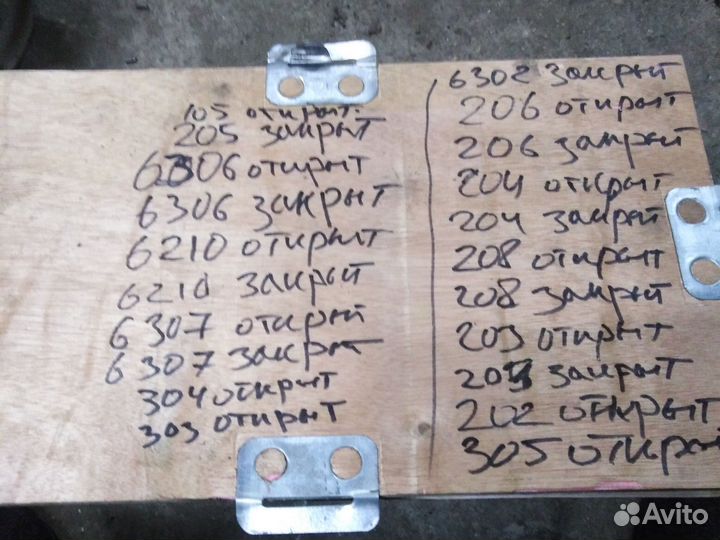 105 открыт.
205 закрыт
6306 открыт
6306 закрыт
6210 открыт
6210 закрыт
6307 открыт
6307 закрыт
304 открыт
303 открыт
6302 закрыт
206 открыт
206 закрыт
204 открыт
204 закрыт
208 открыт
208 закрыт
203 открыт
203 закрыт
202 открыт
305 открыт
Avito